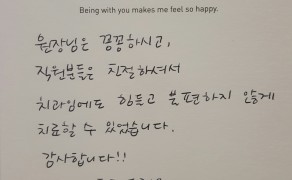 Being with you makes me feel so happy.
원장님은 꼼꼼하시고,
직원분들은 친절하셔서
치과임에도 힘들고 불편하지 않게
치료할 수 있었습니다.
감사합니다!!